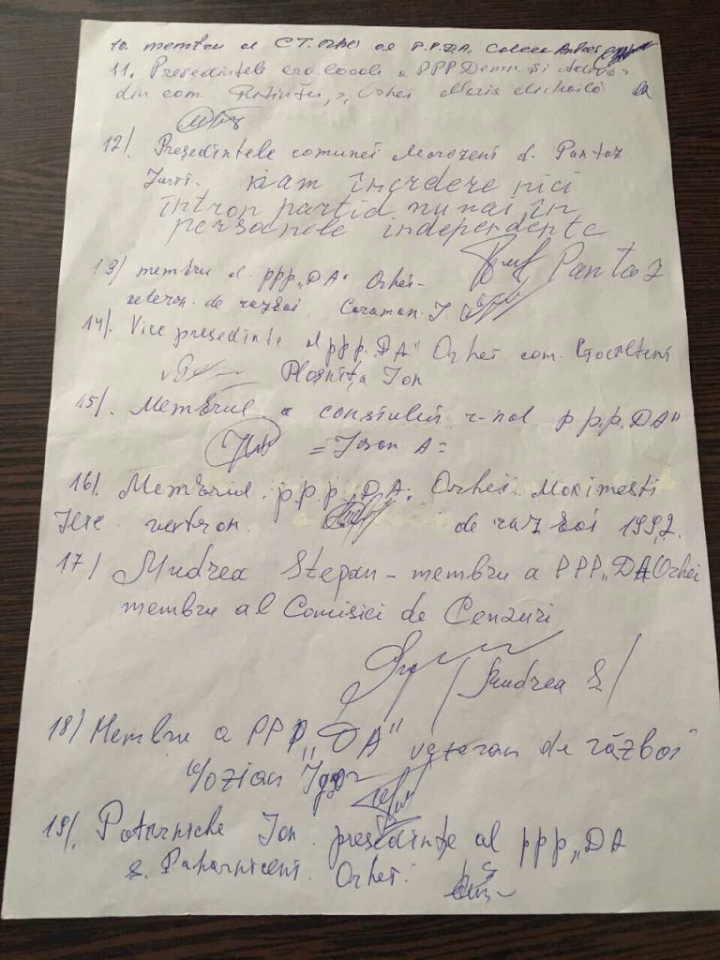 10. membru al CT. Orhei al P.P.DA.
11. Președintele org. locale a PPP Demn. și Adevăr
din com. Orhei Maria Mihailo
12/. Președintele comunei Morozeni d. Pantaz
Iurii. n-am încrdere nici
întron partid numai în
personele independente
Pantaz
13/ membru al ppp „DA" Orhei-
veteran. de război Caraman. I
14/. Vice președinte al ppp. „DA" Orhei com.
Ploșniță Ion
15/. Membrul a consiului r-nal p.p.p. „DA"
= A =
16/. Membrul. p.p.p „DA. Orhei.
de război 1992.
17/ Mudrea Stepan - membru a PPP „DA Orhei
membru al Comisiei de Cenzuri
/ Mudrea S /
18/ Membru a PPP „DA" veteran de război
Cozian Igor
19/. Potîrniche Ion. președinte al ppp „DA
s. Orhei.